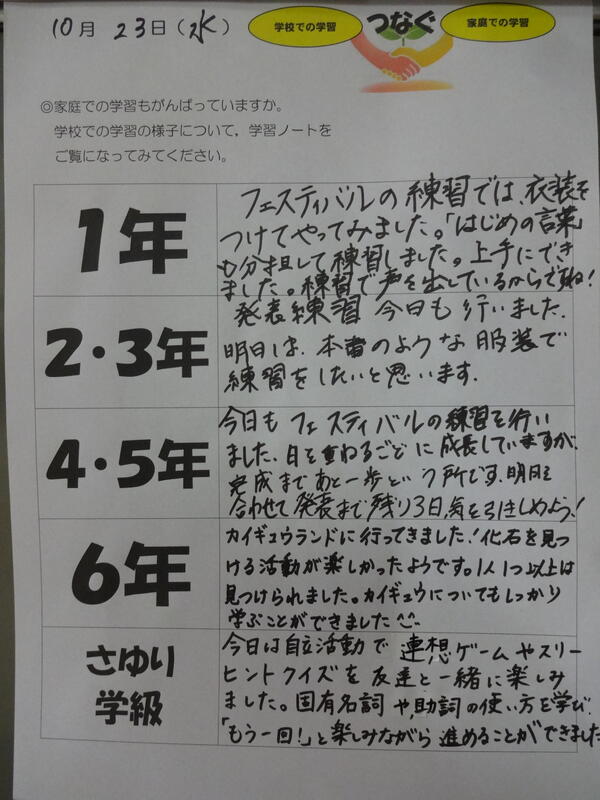 10月 23日(水)
学校での学習 つなぐ 家庭での学習
◎家庭での学習もがんばっていますか。
学校での学習の様子について，学習ノートを
ご覧になってみてください。
1年
フェスティバルの練習では、衣装を
つけてやってみました。「はじめの言葉」
も分担して練習しました。上手にでき
ました。練習で声を出しているからですね!
2・3年
発表練習 今日も行いました.
明日は、本番のような服装で
練習をしたいと思います.
4・5年
今日もフェスティバルの練習を行い
ました.日を重ねるごとに成長していますが、
完成まであと一歩という所です.明日を
合わせて発表まで残り3日,気を引きしめよう!
6年
カイギュウランドに行ってきました!化石を見つ
ける活動が楽しかったようです。1人1つ以上は
見つけられました。カイギュウについてもしっかり
学ぶことができました
さゆり
学級
今日は自立活動で 連想ゲームやスリー
ヒントクイズを友達と一緒に楽しみ
ました。固有名詞や,助詞の使い方を学び、
「もう一回!」と楽しみながら進めることができました